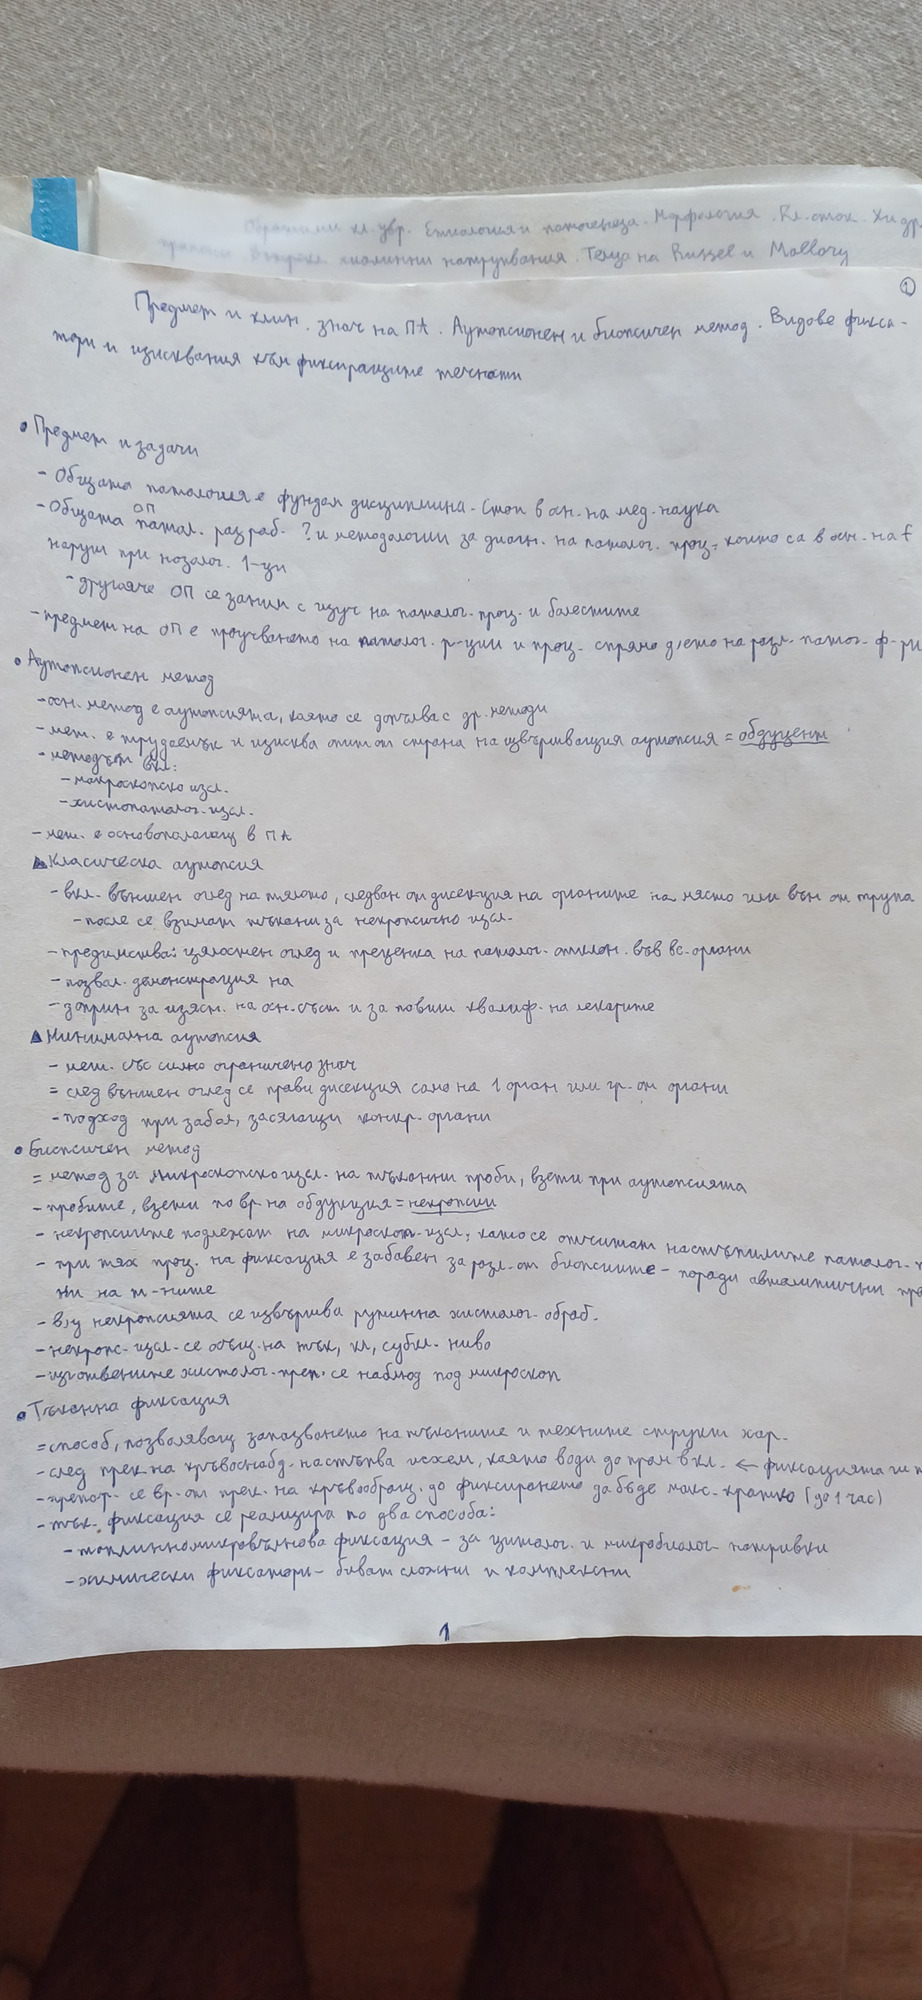 Обратими кл. увр. Етиология и патогенеза. Морфология. Вл. оток. Хидр
Вътрекл. хиалинни натрупвания. Телца на Russel и Mallory
1
Предмет и клин. знач на ПА. Аутопсионен и биопсичен метод. Видове фикса-
тори и изисквания към фиксиращите течности
• Предмет и задачи
- Общата патология е фундам дисциплина. Стои в осн. на мед. наука
ОП
- Общата патол. разраб. ? и методологии за диагн. на патолог. проц., които са в осн. на f
наруш при нозолог. 1-ци
- другояче ОП се заним с изуч на патолог. проц. и болестите
- предмет на ОП е проучването на патолог. р-ции и проц. спрямо д/ето на разл. патог. ф-ри
• Аутопсионен метод
- осн. метод е аутопсията, която се допълва с др. методи
- мет. е трудоемък и изисква опит от страна на извършващия аутопсия = обдуцент
- методът вкл:
- макроскопско изсл.
- хистопатолог. изсл.
- мет. е основополагащ в ПА
▲ Класическа аутопсия
- вкл. външен оглед на тялото, следван от дисекция на органите на място или вън от трупа
- после се взимат тъкани за некропсично изсл.
- предимства: цялостен оглед и преценка на патолог. отклон. във вс. органи
- позвол. демонстрация на
- доприн за изясн. на осн. съст и за повиш квалиф. на лекарите
▲ Минимална аутопсия
- мет. със силно ограничено знач
= след външен оглед се прави дисекция само на 1 орган или гр. от органи
- подход при забол, засягащи конкр. органи
• Биопсичен метод
= метод за микроскопско изсл. на тъканни проби, взети при аутопсията
- пробите, взети по вр. на обдукция = некропсии
- некропсиите подлежат на микроскоп. изсл., като се отчитат настъпилите патолог.
- при тях проц. на фиксация е забавен за разл. от биопсиите - поради автолитични
ни на т-ните
- в/у некропсията се извършва рутинна хистолог. обраб.
- некропс. изсл. се осъщ. на тък, кл, субкл. ниво
- изготвените хистолог. преп. се наблюд под микроскоп
• Тъканна фиксация
= способ, позволяващ запазването на тъканите и техните структ хар.
- след прек. на кръвоснабд. настъпва исхем, която води до пром в кл. ← фиксацията ги
- препор. се вр. от прек. на кръвообращ. до фиксирането да бъде макс. кратко (до 1 час)
- тък. фиксация се реализира по два способа:
- топлинномикровълнова фиксация - за цитолог. и микробиолог натривки
- химически фиксатори - биват сложни и комплексни
1